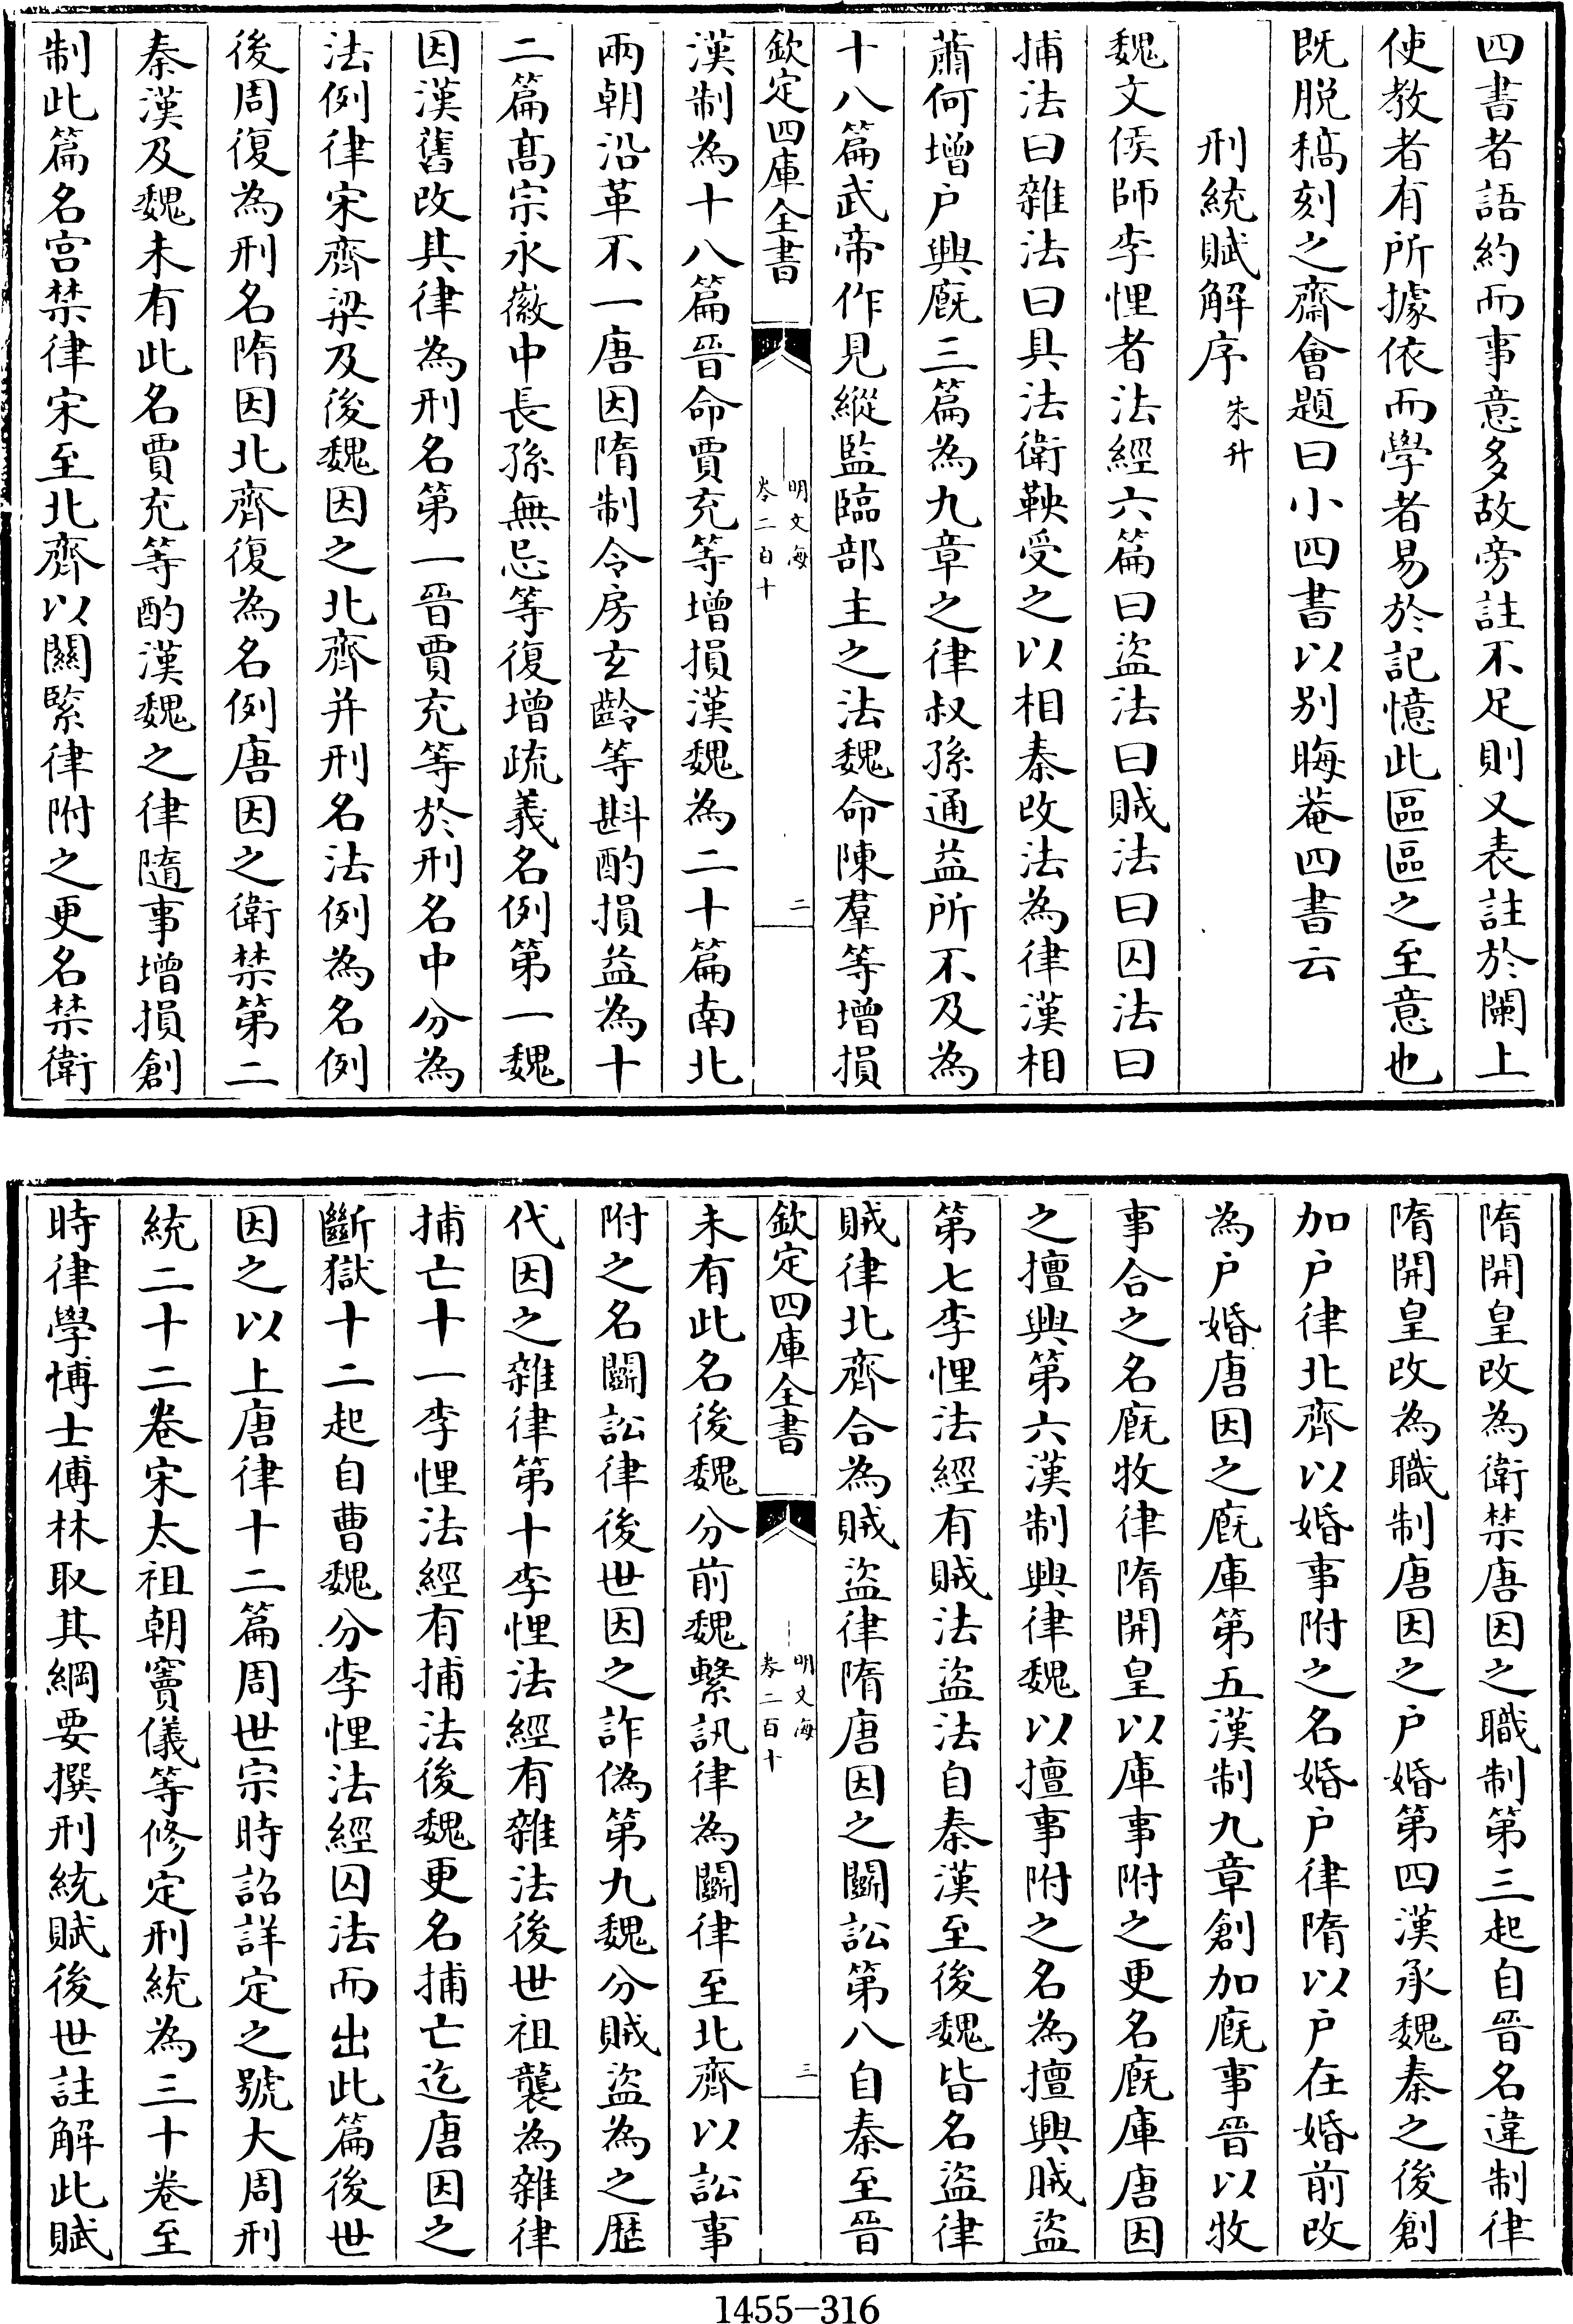 四書者語約而事意多故旁註不足則又表註於闌上
使教者有所據依而學者易於記憶此區區之至意也
既脱稿刻之齋會題曰小四書以别晦菴四書云
刑統賦解序 朱升
魏文侯師李悝者法經六篇曰盜法曰賊法曰囚法曰
捕法曰雜法曰具法衛鞅受之以相秦改法為律漢相
蕭何增户興厩三篇為九章之律叔孫通益所不及為
十八篇武帝作見縱監臨部主之法魏命陳羣等增損
欽定四庫全書
明文海
卷二百十
二
漢制為十八篇晉命賈充等增損漢魏為二十篇南北
兩朝沿革不一唐因隋制令房玄齡等斟酌損益為十
二篇髙宗永徽中長孫無忌等復增疏義名例第一魏
因漢舊改其律為刑名第一晉賈充等於刑名中分為
法例律宋齊梁及後魏因之北齊并刑名法例為名例
後周復為刑名隋因北齊復為名例唐因之衛禁第二
秦漢及魏未有此名賈充等酌漢魏之律隨事增損創
制此篇名宫禁律宋至北齊以關緊律附之更名禁衛
隋開皇改為衛禁唐因之職制第三起自晉名違制律
隋開皇改為職制唐因之户婚第四漢承魏秦之後創
加户律北齊以婚事附之名婚户律隋以户在婚前改
為户婚唐因之厩庫第五漢制九章創加厩事晉以牧
事合之名厩牧律隋開皇以庫事附之更名厩庫唐因
之擅興第六漢制興律魏以擅事附之名為擅興賊盜
第七李悝法經有賊法盜法自秦漢至後魏皆名盜律
賊律北齊合為賊盜律隋唐因之鬭訟第八自秦至晉
欽定四庫全書
明文海
卷二百十
三
未有此名後魏分前魏繫訊律為鬭律至北齊以訟事
附之名鬭訟律後世因之詐偽第九魏分賊盜為之歴
代因之雜律第十李悝法經有雜法後世祖襲為雜律
捕亡十一李悝法經有捕法後魏更名捕亡迄唐因之
斷獄十二起自曹魏分李悝法經囚法而出此篇後世
因之以上唐律十二篇周世宗時詔詳定之號大周刑
統二十二卷宋太祖朝竇儀等修定刑統為三十卷至
時律學博士傅林取其綱要撰刑統賦後世註解此賦
1455—316